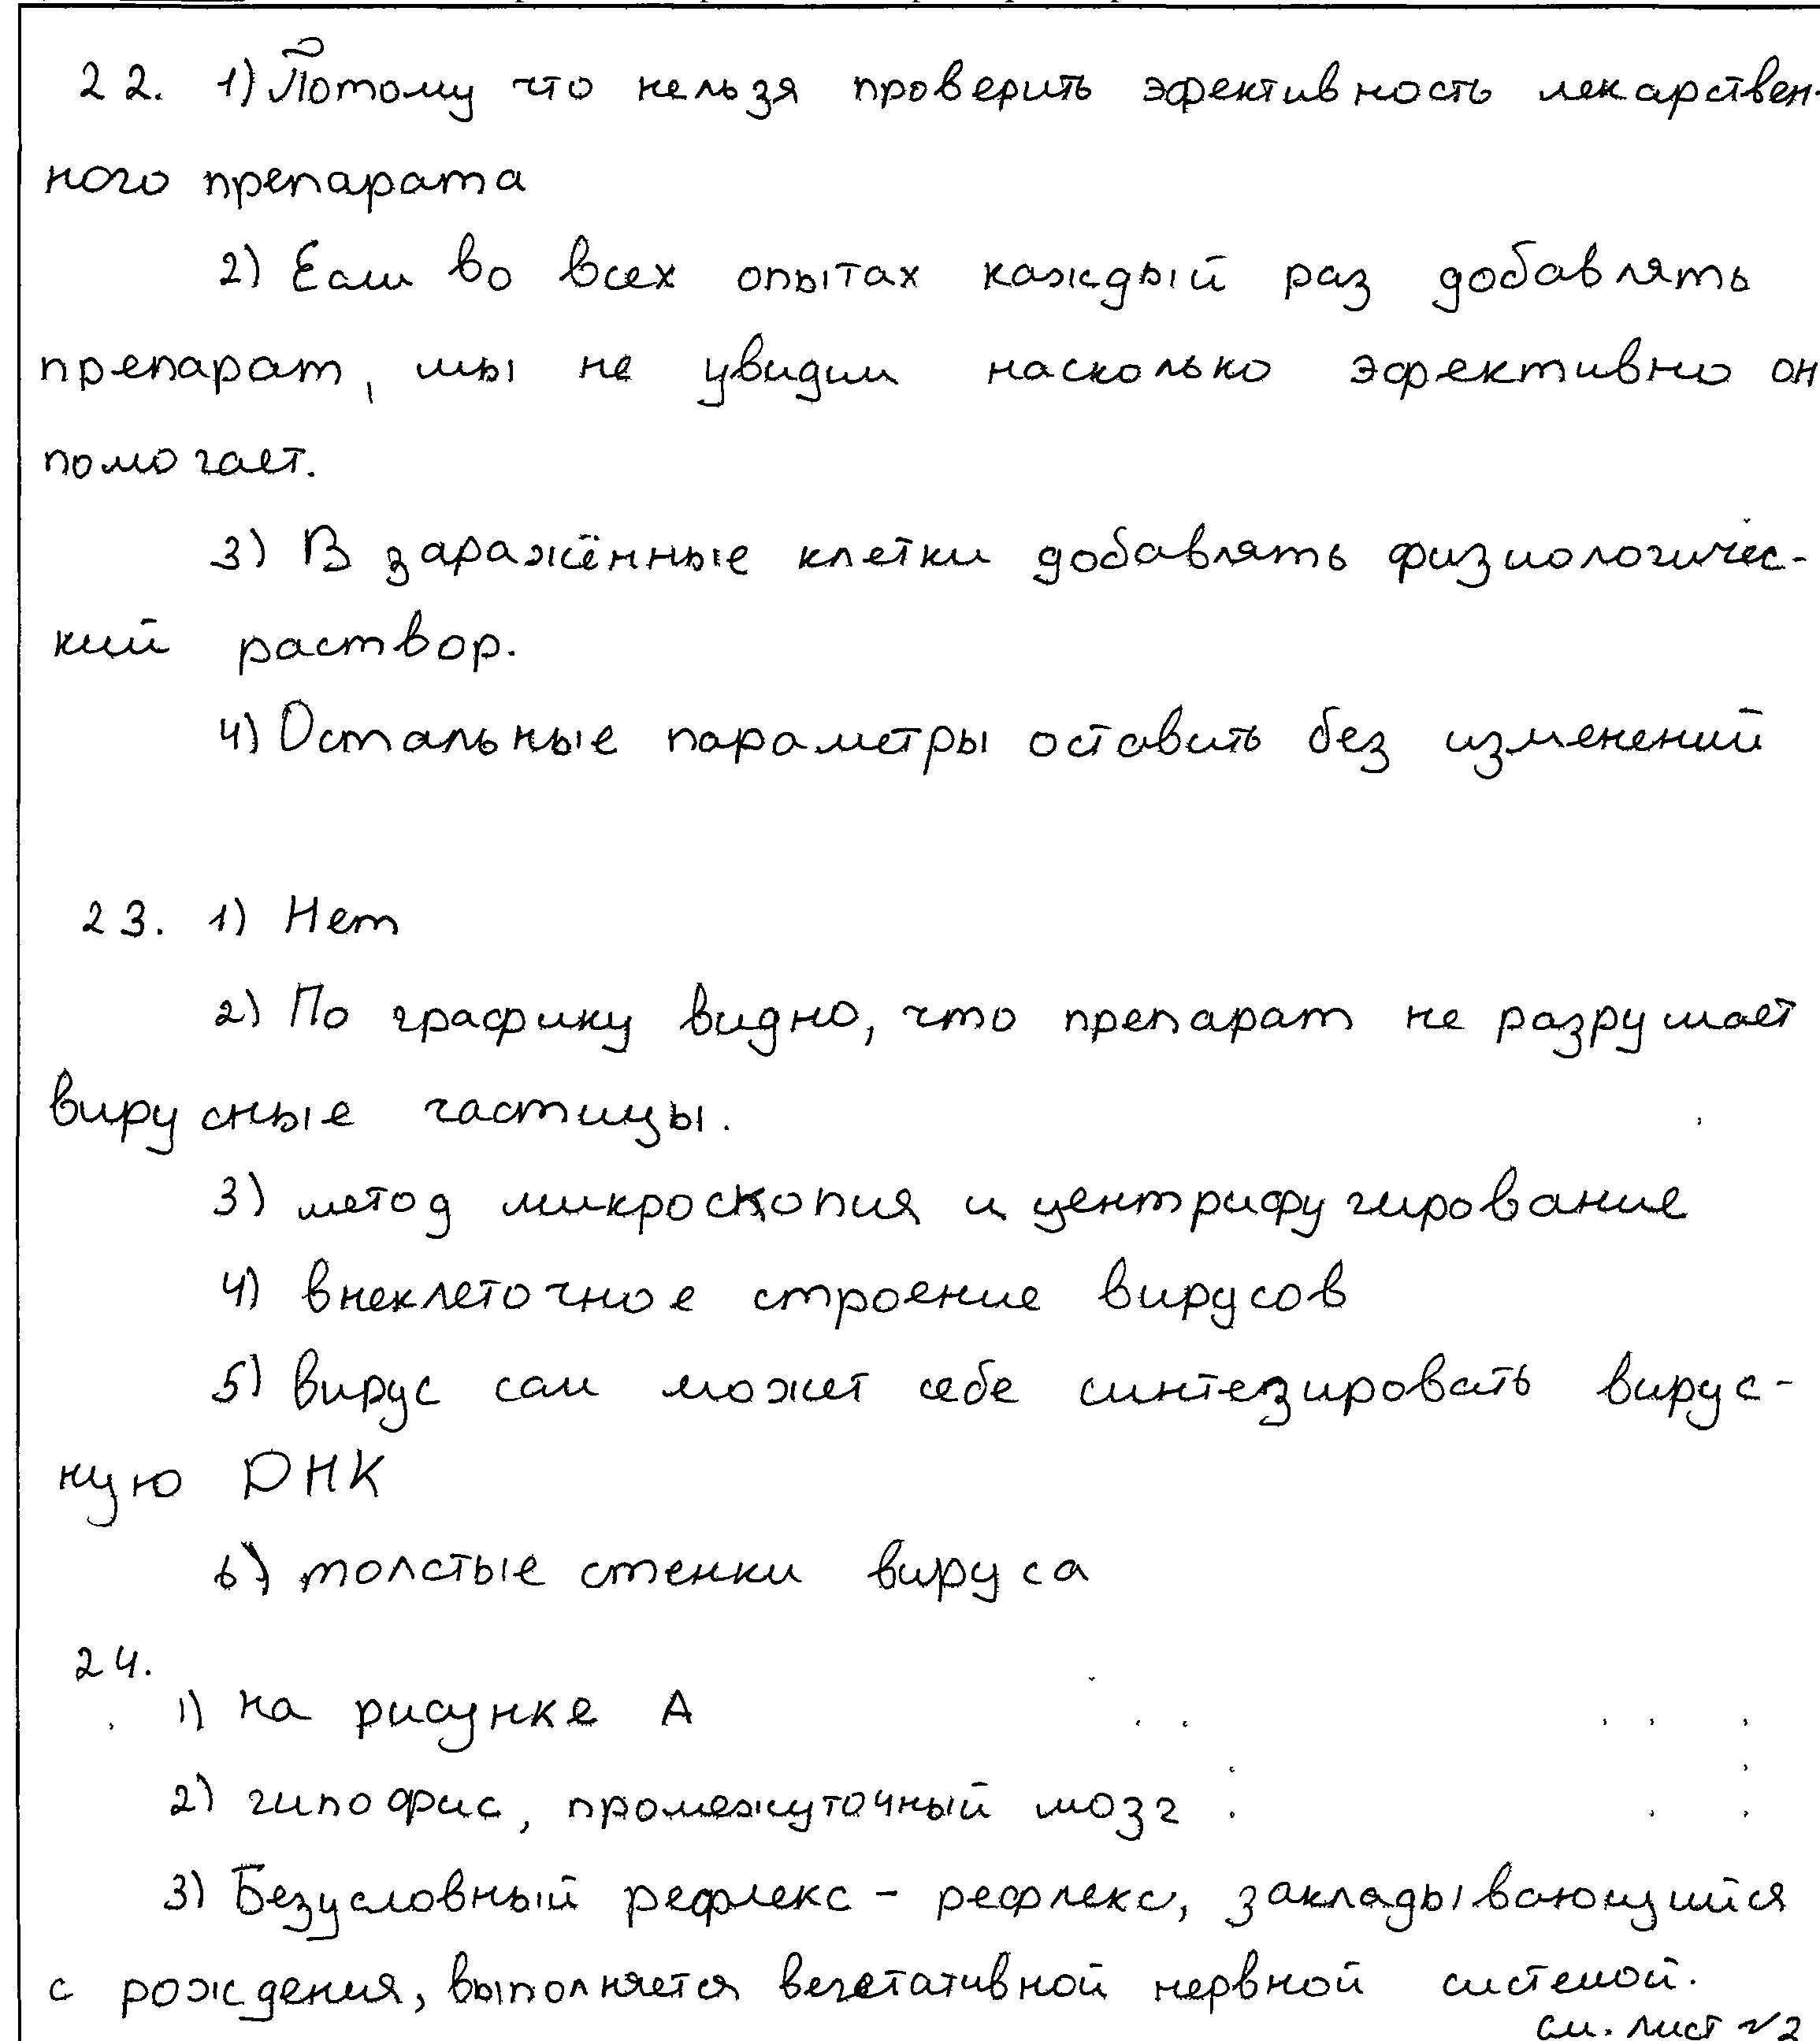 22. 1) Потому что нельзя проверить эфективность лекарствен-
ного препарата
2) Если во всех опытах каждый раз добавлять
препарат, мы не увидим насколько эфективно он
помогает.
3) В заражённые клетки добавлять физиологичес-
кий раствор.
4) Остальные параметры оставить без изменений
23. 1) Нет
2) По графику видно, что препарат не разрушает
вирусные частицы.
3) метод микроскопия и центрифугирование
4) внеклеточное строение вирусов
5) вирус сам может себе синтезировать вирус-
ную ДНК
6) толстые стенки вируса
24.
1) на рисунке А
2) гипофис, промежуточный мозг
3) Безусловный рефлекс - рефлекс, закладывающийся
с рождения, выполняется вегетативной нервной системой.
см. лист №2